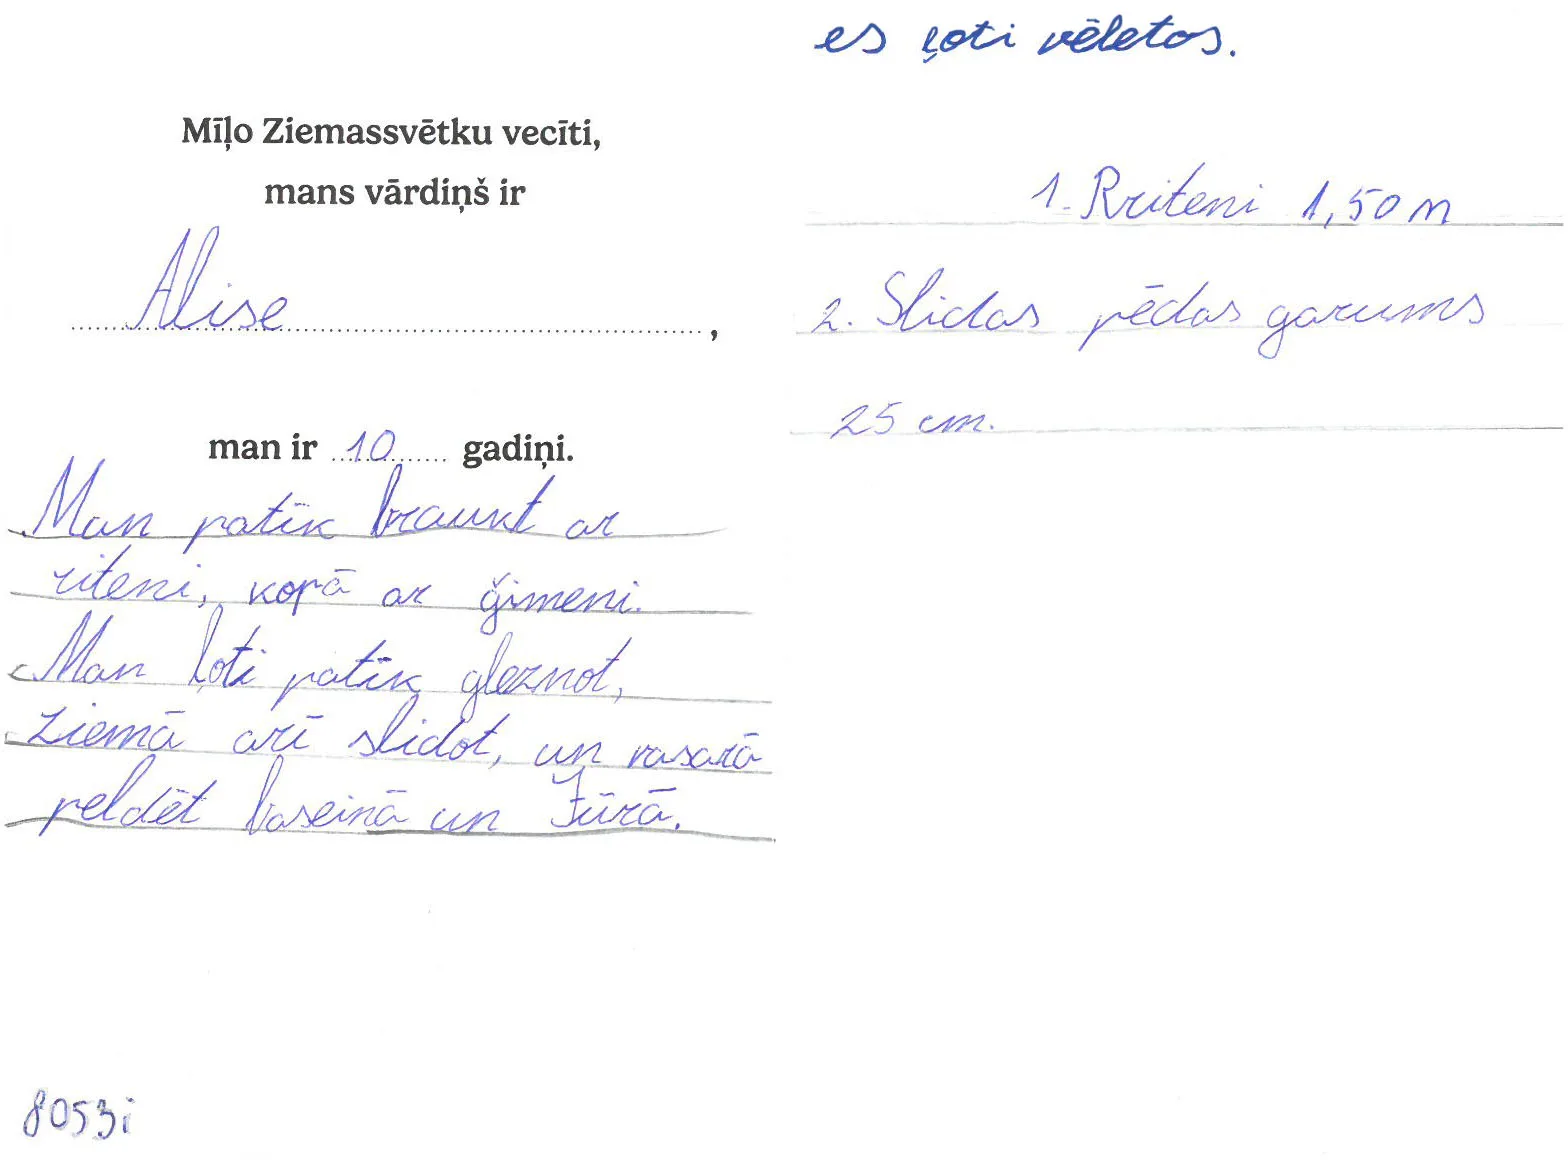 Mīļo Ziemassvētku vecīti,
mans vārdiņš ir
Alise,
man ir 10 gadiņi.
Man patīk braukt ar
riteni, kopā ar ģimeni.
Man ļoti patīk gleznot,
ziemā arī slidot, un vasarā
peldēt baseinā un Jūrā.
8053i
es ļoti vēletos.
1. Rriteni 1,50 m
2. Slidas pēdas garums
25 cm.